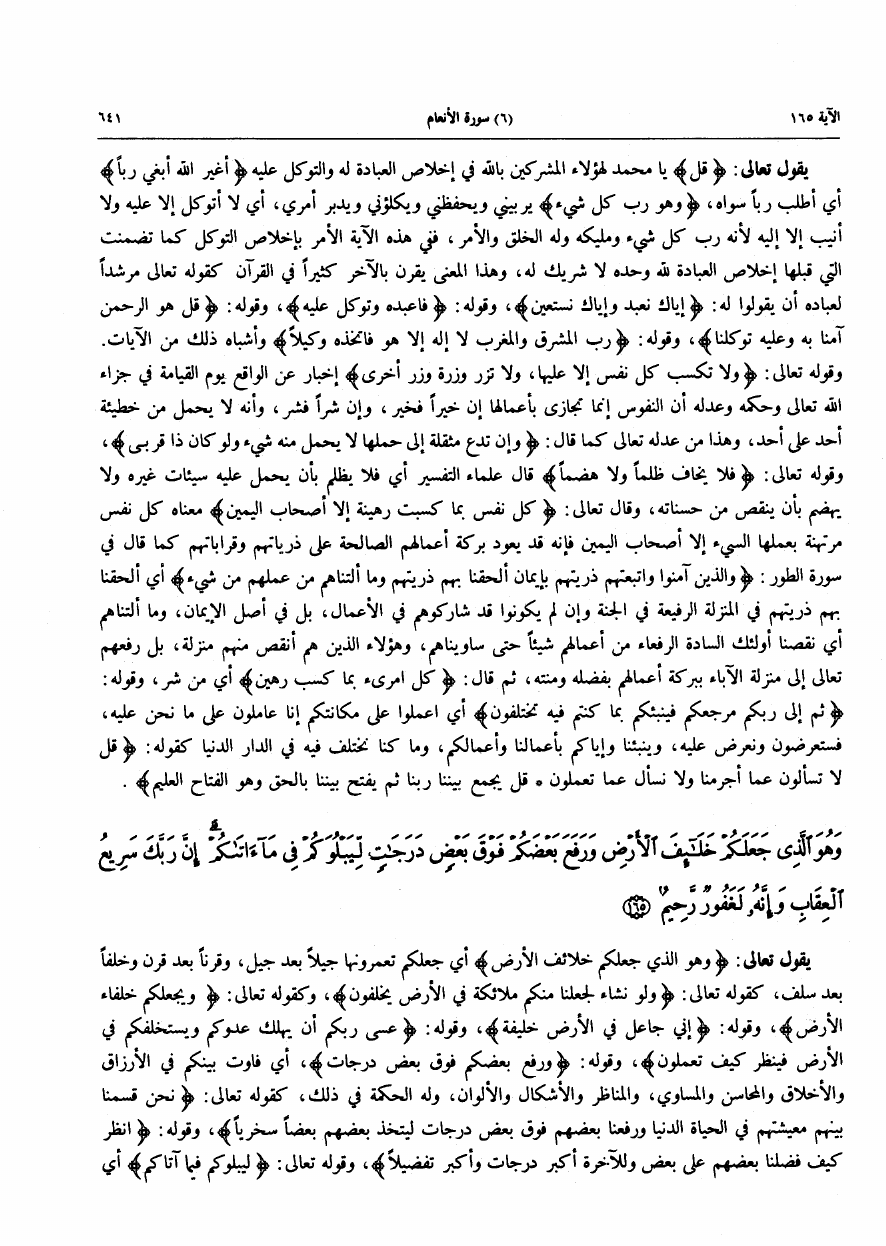 الآية ١٦٥ (٦) سورة الأنعام ٦٤١
يقول تعالى: ﴿قل﴾ يا محمد لهؤلاء المشركين بالله في إخلاص العبادة له والتوكل عليه ﴿أغير الله أبغي رباً﴾
أي أطلب رباً سواه، ﴿وهو رب كل شيء﴾ يربيني ويحفظني ويكلؤني ويدبر أمري، أي لا أتوكل إلا عليه ولا
أنيب إلا إليه لأنه رب كل شيء ومليكه وله الخلق والأمر، ففي هذه الآية الأمر بإخلاص التوكل كما تضمنت
التي قبلها إخلاص العبادة لله وحده لا شريك له، وهذا المعنى يقرن بالآخر كثيراً في القرآن كقوله تعالى مرشداً
لعباده أن يقولوا له: ﴿إياك نعبد وإياك نستعين﴾، وقوله: ﴿فاعبده وتوكل عليه﴾، وقوله: ﴿قل هو الرحمن
آمنا به وعليه توكلنا﴾، وقوله: ﴿رب المشرق والمغرب لا إله إلا هو فاتخذه وكيلاً﴾ وأشباه ذلك من الآيات.
وقوله تعالى: ﴿ولا تكسب كل نفس إلا عليها، ولا تزر وزرة وزر أخرى﴾ إخبار عن الواقع يوم القيامة في جزاء
الله تعالى وحكمه وعدله أن النفوس إنما تجازى بأعمالها إن خيراً فخير، وإن شراً فشر، وأنه لا يحمل من خطيئة
أحد على أحد، وهذا من عدله تعالى كما قال: ﴿وإن تدع مثقلة إلى حملها لا يحمل منه شيء ولو كان ذا قربى﴾،
وقوله تعالى: ﴿فلا يخاف ظلماً ولا هضماً﴾ قال علماء التفسير أي فلا يظلم بأن يحمل عليه سيئات غيره ولا
يهضم بأن ينقص من حسناته، وقال تعالى: ﴿كل نفس بما كسبت رهينة إلا أصحاب اليمين﴾ معناه كل نفس
مرتهنة بعملها السيء إلا أصحاب اليمين فإنه قد يعود بركة أعمالهم الصالحة على ذرياتهم وقراباتهم كما قال في
سورة الطور: ﴿والذين آمنوا واتبعتهم ذريتهم بإيمان ألحقنا بهم ذريتهم وما ألتناهم من عملهم من شيء﴾ أي ألحقنا
بهم ذريتهم في المنزلة الرفيعة في الجنة وإن لم يكونوا قد شاركوهم في الأعمال، بل في أصل الإيمان، وما ألتناهم
أي نقصنا أولئك السادة الرفعاء من أعمالهم شيئاً حتى ساويناهم، وهؤلاء الذين هم أنقص منهم منزلة، بل رفعهم
تعالى إلى منزلة الآباء ببركة أعمالهم بفضله ومنته، ثم قال: ﴿كل امرىء بما كسب رهين﴾ أي من شر، وقوله:
﴿ثم إلى ربكم مرجعكم فينبئكم بما كنتم فيه تختلفون﴾ أي اعملوا على مكانتكم إنا عاملون على ما نحن عليه،
فستعرضون ونعرض عليه، وينبئنا وإياكم بأعمالنا وأعمالكم، وما كنا نختلف فيه في الدار الدنيا كقوله: ﴿قل
لا تسألون عما أجرمنا ولا نسأل عما تعملون * قل يجمع بيننا ربنا ثم يفتح بيننا بالحق وهو الفتاح العليم﴾.
وَهُوَ ٱلَّذِى جَعَلَكُمْ خَلَٰٓئِفَ ٱلْأَرْضِ وَرَفَعَ بَعْضَكُمْ فَوْقَ بَعْضٍ دَرَجَٰتٍ لِّيَبْلُوَكُمْ فِى مَآ ءَاتَىٰكُمْ ۗ إِنَّ رَبَّكَ سَرِيعُ
ٱلْعِقَابِ وَإِنَّهُۥ لَغَفُورٌ رَّحِيمٌۢ ﴿١٦٥﴾
يقول تعالى: ﴿وهو الذي جعلكم خلائف الأرض﴾ أي جعلكم تعمرونها جيلاً بعد جيل، وقرناً بعد قرن وخلفاً
بعد سلف، كقوله تعالى: ﴿ولو نشاء لجعلنا منكم ملائكة في الأرض يخلفون﴾، وكقوله تعالى: ﴿ويجعلكم خلفاء
الأرض﴾، وقوله: ﴿إني جاعل في الأرض خليفة﴾، وقوله: ﴿عسى ربكم أن يهلك عدوكم ويستخلفكم في
الأرض فينظر كيف تعملون﴾، وقوله: ﴿ورفع بعضكم فوق بعض درجات﴾، أي فاوت بينكم في الأرزاق
والأخلاق والمحاسن والمساوي، والمناظر والأشكال والألوان، وله الحكمة في ذلك، كقوله تعالى: ﴿نحن قسمنا
بينهم معيشتهم في الحياة الدنيا ورفعنا بعضهم فوق بعض درجات ليتخذ بعضهم بعضاً سخرياً﴾، وقوله: ﴿انظر
كيف فضلنا بعضهم على بعض وللآخرة أكبر درجات وأكبر تفضيلاً﴾، وقوله تعالى: ﴿ليبلوكم فيما آتاكم﴾ أي